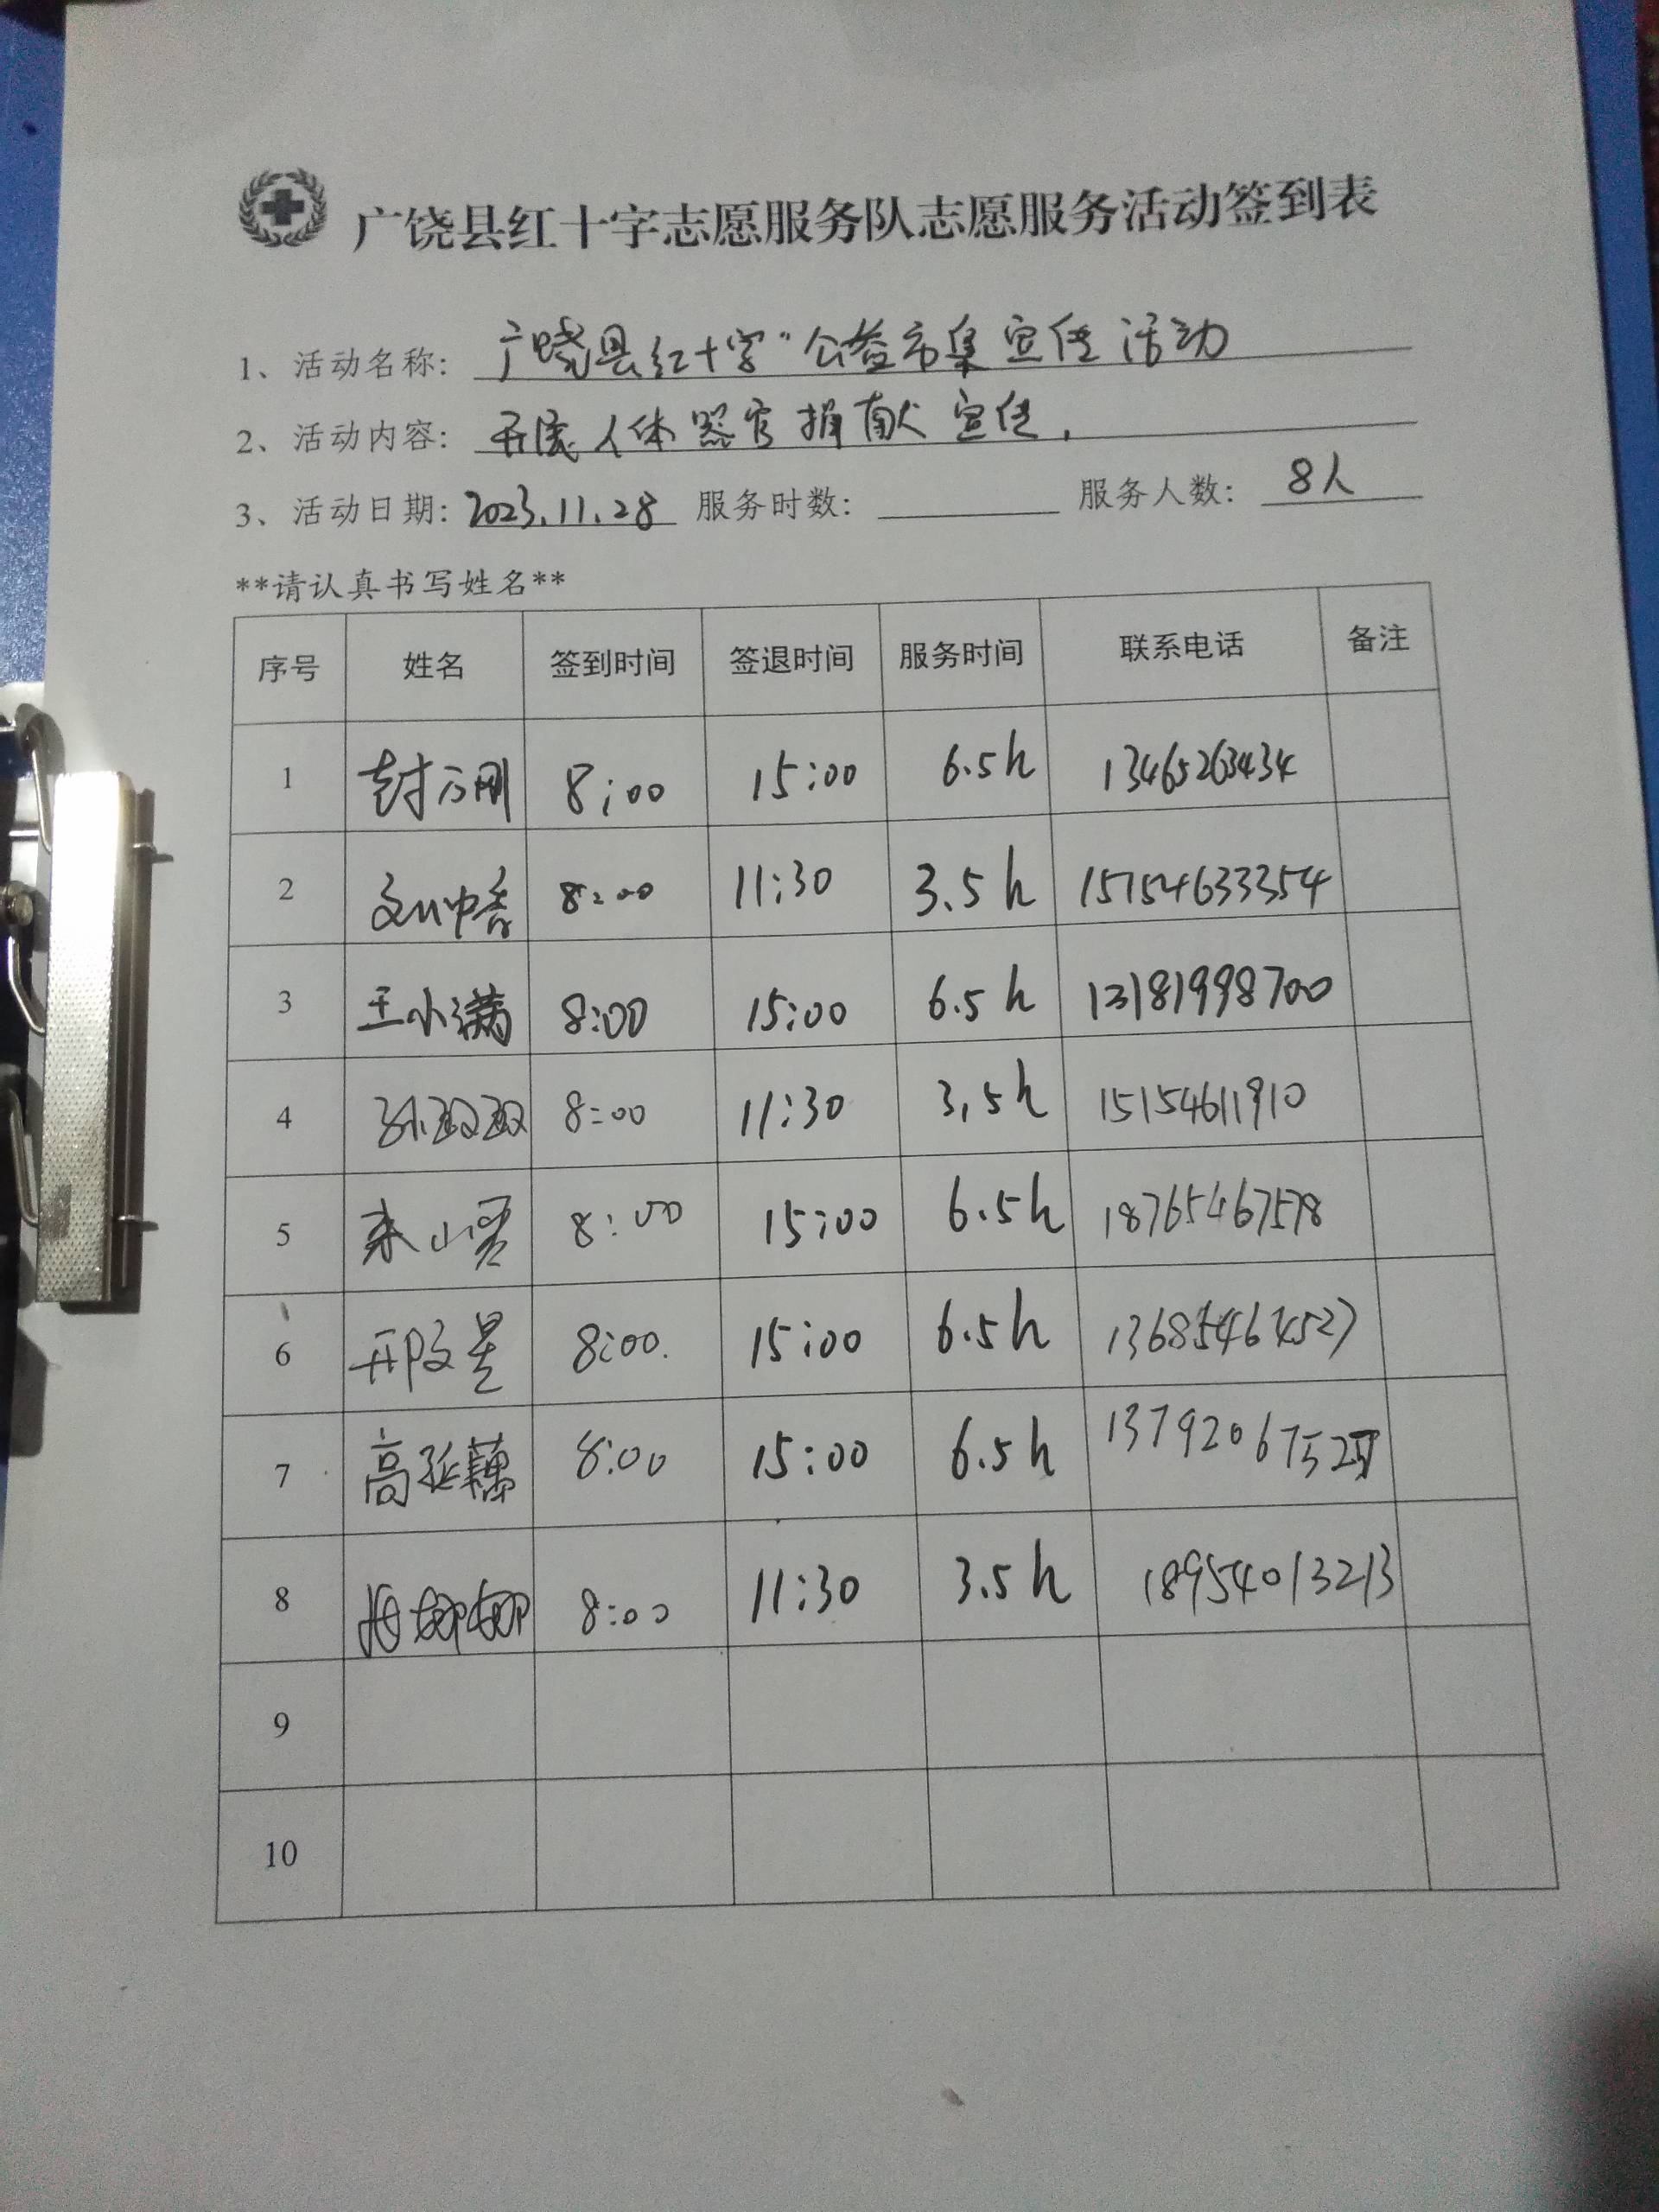 广饶县红十字志愿服务队志愿服务活动签到表
1、活动名称: 广饶县红十字"公益市集宣传活动
2、活动内容: 开展人体器官捐献宣传.
3、活动日期: 2023.11.28 服务时数: 服务人数: 8人
**请认真书写姓名**
序号 姓名 签到时间 签退时间 服务时间 联系电话 备注
1 8:00 15:00 6.5h 13465263434
2 8:00 11:30 3.5h 15154633354
3 王小满 8:00 15:00 6.5h 13181998700
4 8:00 11:30 3.5h 15154611910
5 8:00 15:00 6.5h 18765467578
6 邢文星 8:00. 15:00 6.5h 13685467527
7 高延藕 8:00 15:00 6.5h
8 8:00 11:30 3.5h 18954013213
9
10